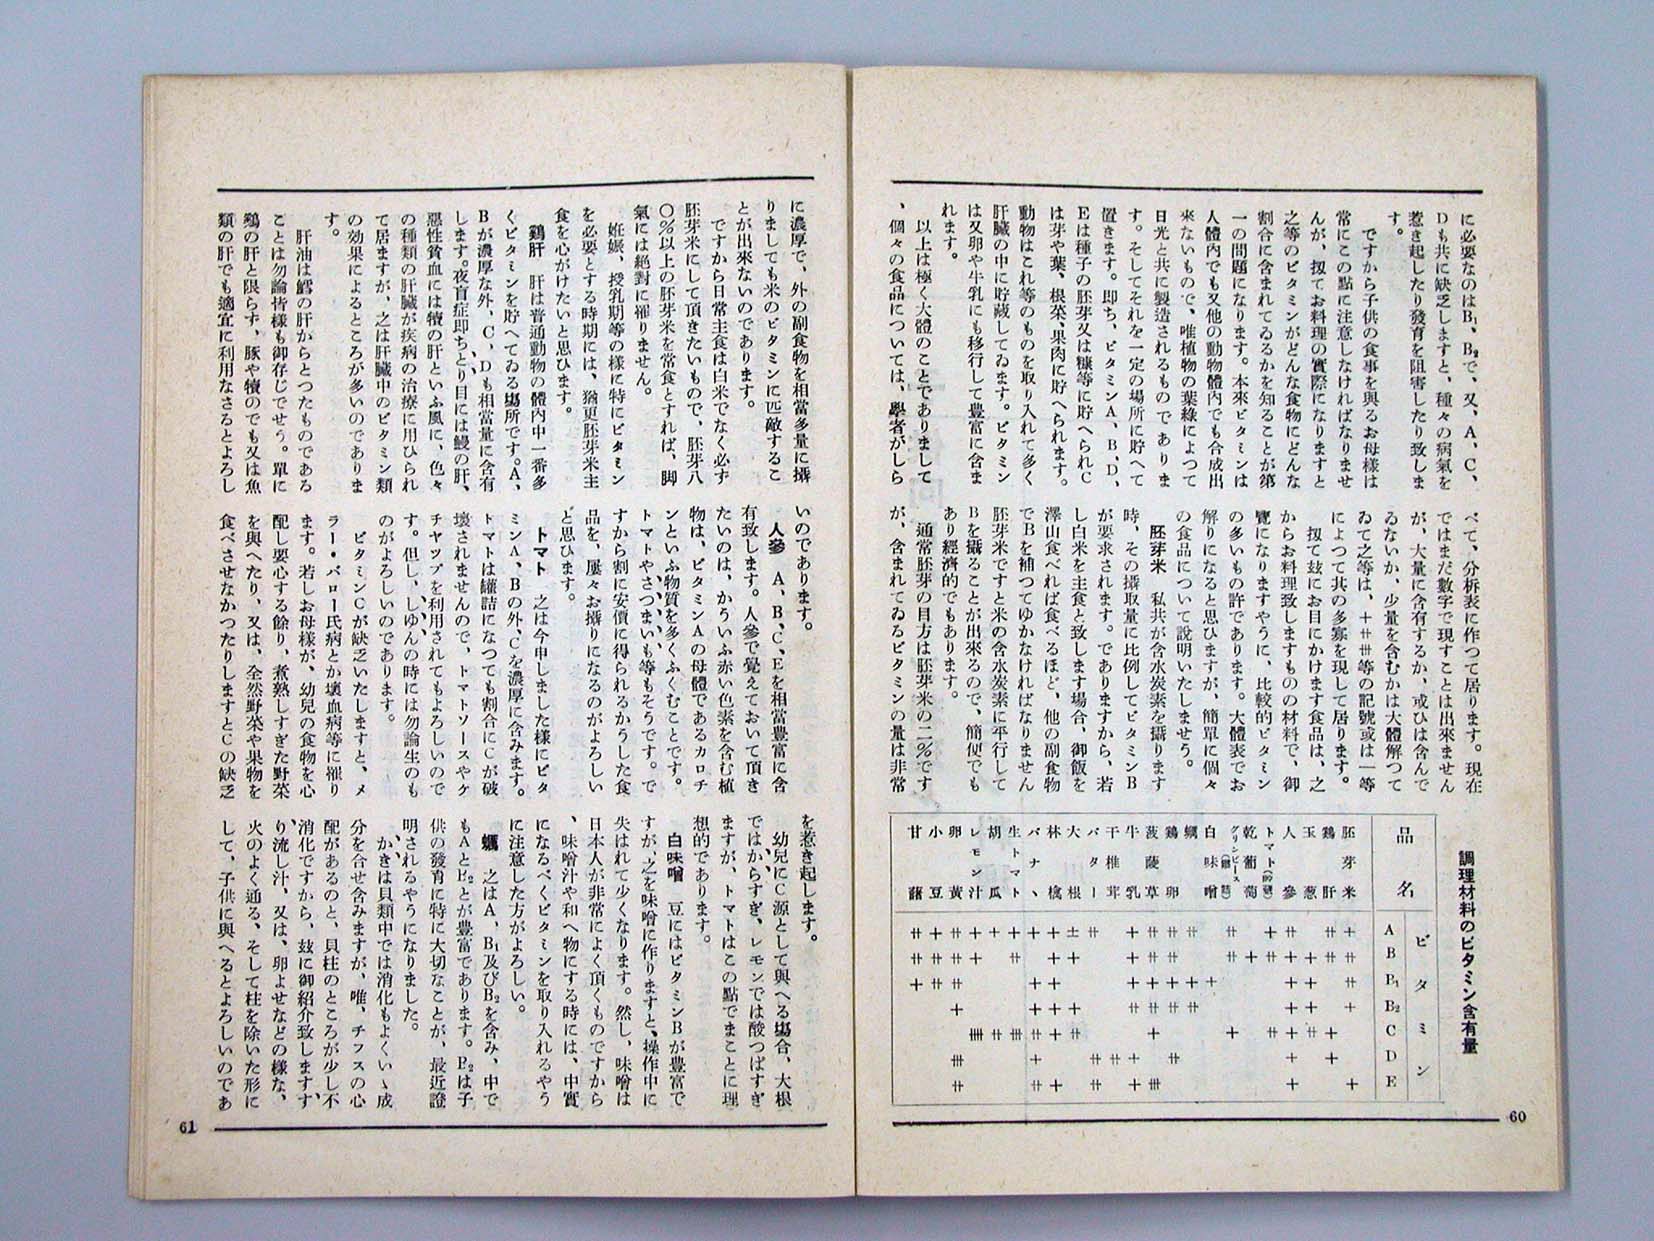 に必要なのはB₁、B₂で、又、A、C、
Dも共に缺乏しますと、種々の病氣を
惹き起したり發育を阻害したり致しま
す。
ですから子供の食事を與るお母様は
常にこの點に注意しなければなりませ
んが、扨てお料理の實際になりますと
之等のビタミンがどんな食物にどんな
割合に含まれてゐるかを知ることが第
一の問題になります。本來ビタミンは
人體内でも又他の動物體内でも合成出
來ないもので、唯植物の葉綠によつて
日光と共に製造されるものでありま
す。そしてそれを一定の場所に貯へて
置きます。即ち、ビタミンA、B、D、
Eは種子の胚芽又は糠等に貯へられC
は芽や葉、根菜、果肉に貯へられます。
動物はこれ等のものを取り入れて多く
肝臓の中に貯藏してゐます。ビタミン
は又卵や牛乳にも移行して豐富に含ま
れます。
以上は極く大體のことでありまして
、個々の食品については、學者がしら
べて、分析表に作つて居ります。現在
ではまだ數字で現すことは出來ません
が、大量に含有するか、或ひは含んで
ゐないか、少量を含むかは大體解つて
ゐて之等は、＋⧺⧻等の記號或は一等
によつて其の多寡を現して居ります。
扨て玆にお目にかけます食品は、之
からお料理致しますものの材料で、御
覽になりますやうに、比較的ビタミン
の多いもの許であります。大體表でお
解りになると思ひますが、簡單に個々
の食品について說明いたしませう。
胚芽米　私共が含水炭素を攝ります
時、その攝取量に比例してビタミンB
が要求されます。でありますから、若
し白米を主食と致します場合、御飯を
澤山食べれば食べるほど、他の副食物
でBを補つてゆかなければなりません
胚芽米ですと米の含水炭素に平行して
Bを攝ることが出來るので、簡便でも
あり經濟的でもあります。
通常胚芽の目方は胚芽米の二％です
が、含まれてゐるビタミンの量は非常
調理材料のビタミン含有量
品名　ビタミン
A　B　B₁　B₂　C　D　E
胚芽米
鷄肝
玉葱
人參
トマト
乾葡萄
グリンピース
白味噌
蠣
鷄卵
菠薐草
牛乳
干椎茸
バター
大根
林檎
バナヽ
生トマト
胡瓜
レモン汁
卵黃
小豆
甘藷
60
に濃厚で、外の副食物を相當多量に攝
りましても米のビタミンに匹敵するこ
とが出來ないのであります。
ですから日常主食は白米でなく必ず
胚芽米にして頂きたいもので、胚芽八
〇％以上の胚芽米を常食とすれば、脚
氣には絕對に罹りません。
妊娠、授乳期等の樣に特にビタミン
を必要とする時期には、猶更胚芽米主
食を心がけたいと思ひます。
鷄肝　肝は普通動物の體内中一番多
くビタミンを貯へてゐる場所です。A、
Bが濃厚な外、C、Dも相當量に含有
します。夜盲症即ちとり目には鰻の肝、
惡性貧血には犢の肝といふ風に、色々
の種類の肝臓が疾病の治療に用ひられ
て居ますが、之は肝臓中のビタミン類
の效果によるところが多いのでありま
す。
肝油は鱈の肝からとつたものである
ことは勿論皆樣も御存じでせう。單に
鷄の肝と限らず、豚や犢のでも又は魚
類の肝でも適宜に利用なさるとよろし
いのであります。
人參　A、B、C、Eを相當豐富に含
有致します。人參で覺えておいて頂き
たいのは、かういふ赤い色素を含む植
物は、ビタミンAの母體であるカロチ
ンといふ物質を多くふくむことです。
トマトやさつまいも等もそうです。で
すから割に安價に得られるかうした食
品を、屢々お攝りになるのがよろしい
と思ひます。
トマト　之は今申しました樣にビタ
ミンA、Bの外、Cを濃厚に含みます。
トマトは罐詰になつても割合にCが破
壞されませんので、トマトソースやケ
チヤップを利用されてもよろしいので
す。但し、しゆんの時には勿論生のも
のがよろしいのであります。
ビタミンCが缺乏いたしますと、メ
ラー・バロー氏病とか壞血病等に罹り
ます。若しお母樣が、幼兒の食物を心
配し要心する餘り、煮熟しすぎた野菜
を與へたり、又は、全然野菜や果物を
食べさせなかつたりしますとCの缺乏
を惹き起します。
幼兒にC源として與へる場合、大根
ではからすぎ、レモンでは酸つぱすぎ
ますが、トマトはこの點でまことに理
想的であります。
白味噌　豆にはビタミンBが豐富で
すが、之を味噌に作りますと、操作中に
失はれて少くなります。然し、味噌は
日本人が非常によく頂くものですから
、味噌汁や和へ物にする時には、中實
になるべくビタミンを取り入れるやう
に注意した方がよろしい。
蠣　之はA、B₁及びB₂を含み、中で
もAとB₂とが豐富であります。B₂は子
供の發育に特に大切なことが、最近證
明されるやうになりました。
かきは貝類中では消化もよくいゝ成
分を合せ含みますが、唯、チフスの心
配があるのと、貝柱のところが少し不
消化ですから、玆に御紹介致しますす
り流し汁、又は、卵よせなどの樣な、
火のよく通る、そして柱を除いた形に
して、子供に與へるとよろしいのであ
61